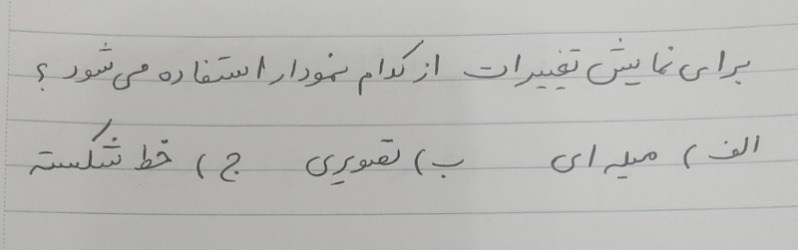 برای نمایش تغییرات از کدام نمودار استفاده می‌شود ؟
الف) میله ای ب) تصویری ج) خط شکسته